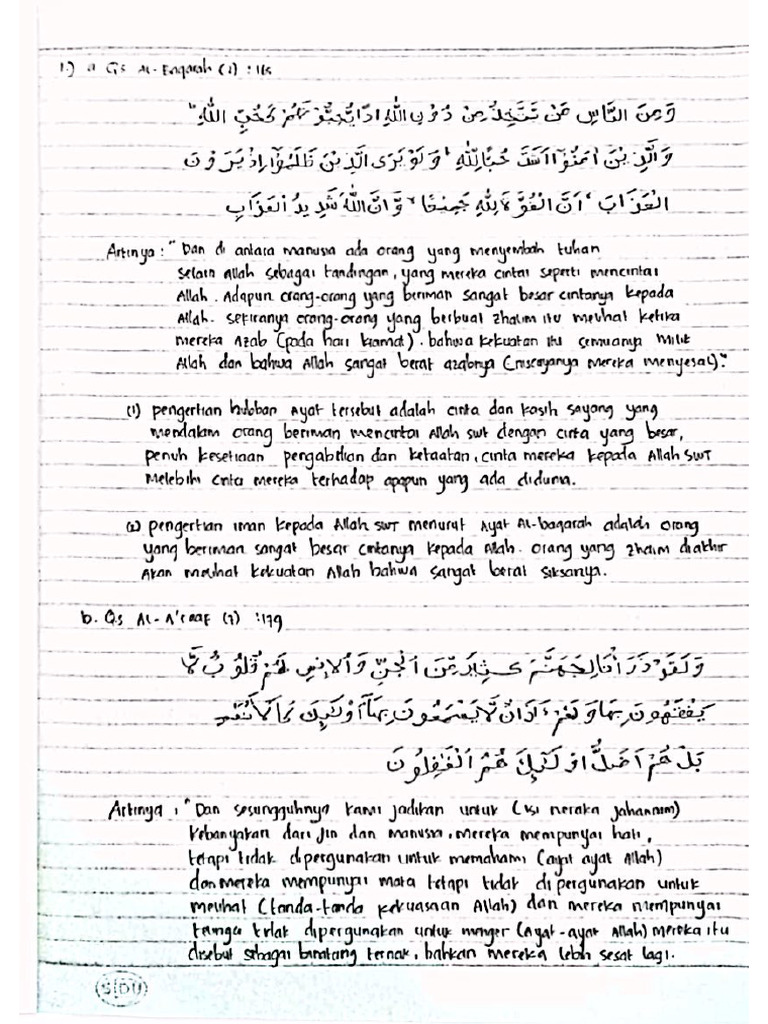 1.) a Qs Al-Baqarah (2) : 165
وَمِنَ النَّاسِ مَنْ يَتَّخِذُ مِنْ دُوْنِ اللّٰهِ اَنْدَادًا يُحِبُّوْنَهُمْ كَحُبِّ اللّٰهِ
وَالَّذِيْنَ اٰمَنُوْٓا اَشَدُّ حُبًّا لِّلّٰهِ ۙوَلَوْ يَرَى الَّذِيْنَ ظَلَمُوْٓا اِذْ يَرَوْنَ
الْعَذَابَۙ اَنَّ الْقُوَّةَ لِلّٰهِ جَمِيْعًا ۙوَّاَنَّ اللّٰهَ شَدِيْدُ الْعَذَابِ
Artinya : "Dan di antara manusia ada orang yang menyembah tuhan
selain Allah sebagai tandingan, yang mereka cintai seperti mencintai
Allah. Adapun orang-orang yang beriman sangat besar cintanya kepada
Allah. sekiranya orang-orang yang berbuat zhalim itu melihat ketika
mereka Azab (pada hari kiamat). bahwa kekuatan itu semuanya Milik
Allah dan bahwa Allah sangat berat azabnya (niscayanya mereka menyesal)."
(1) pengertian hubban Ayat tersebut adalah cinta dan kasih sayang yang
mendalam orang beriman mencintai Allah swt dengan cinta yang besar,
penuh kesetiaan pengabdian dan ketaatan, cinta mereka kepada Allah SWT
Melebihi cinta mereka terhadap apapun yang ada didunia.
(2) pengertian iman kepada Allah SWT menurut Ayat Al-baqarah adalah orang
yang beriman sangat besar cintanya kepada Allah. orang yang zhalim diakhir
Akan melihat kekuatan Allah bahwa sangat berat siksanya.
b. Qs Al-A'raaf (7) : 179
وَلَقَدْ ذَرَأْنَا لِجَهَنَّمَ كَثِيْرًا مِّنَ الْجِنِّ وَالْاِنْسِ لَهُمْ قُلُوْبٌ لَّا
يَفْقَهُوْنَ بِهَا وَلَهُمْ اٰذَانٌ لَّا يَسْمَعُوْنَ بِهَا اُولٰۤىِٕكَ كَالْاَنْعَامِ
بَلْ هُمْ اَضَلُّ اُولٰۤىِٕكَ هُمُ الْغٰفِلُوْنَ
Artinya : "Dan sesungguhnya kami jadikan untuk (isi neraka jahannam)
kebanyakan dari jin dan manusia, mereka mempunyai hati,
tetapi tidak dipergunakan untuk memahami (ayat ayat Allah)
dan mereka mempunyai mata tetapi tidak di pergunakan untuk
melihat (tanda-tanda kekuasaan Allah) dan mereka mempunyai
telinga tidak dipergunakan untuk menger (Ayat-ayat Allah) mereka itu
disebut sebagai binatang ternak, bahkan mereka lebih sesat lagi.
SIDU